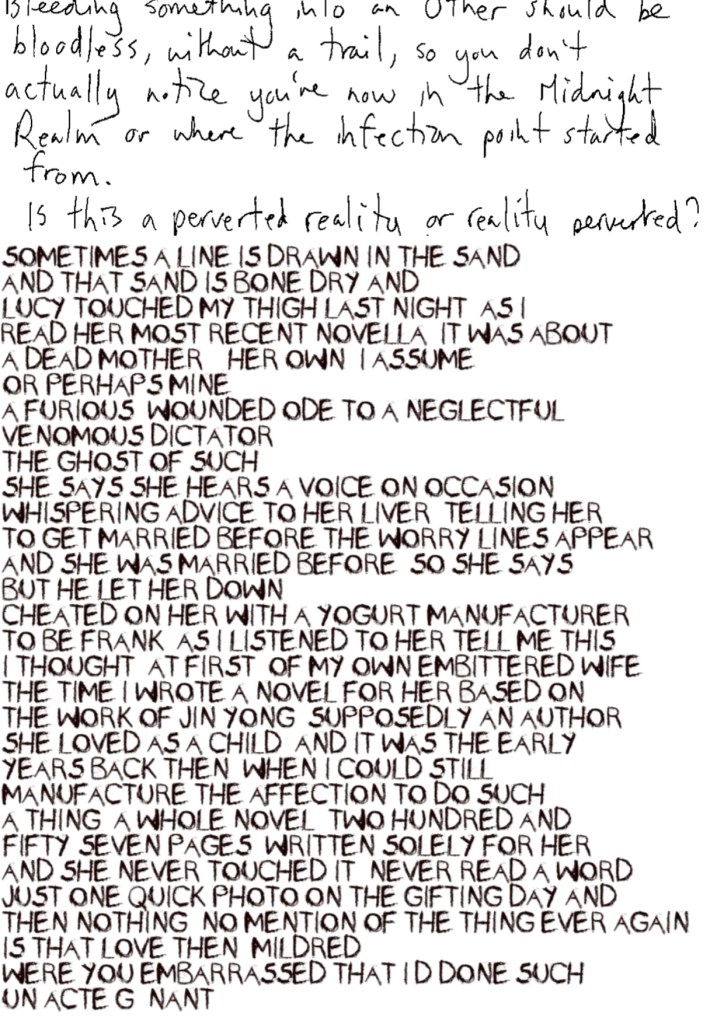 Bleeding something into an Other should be
bloodless, without a trail, so you don't
actually notice you're now in the Midnight
Realm or where the infection point started
from.
Is this a perverted reality or reality perverted?
SOMETIMES A LINE IS DRAWN IN THE SAND
AND THAT SAND IS BONE DRY AND
LUCY TOUCHED MY THIGH LAST NIGHT AS I
READ HER MOST RECENT NOVELLA IT WAS ABOUT
A DEAD MOTHER HER OWN I ASSUME
OR PERHAPS MINE
A FURIOUS WOUNDED ODE TO A NEGLECTFUL
VENOMOUS DICTATOR
THE GHOST OF SUCH
SHE SAYS SHE HEARS A VOICE ON OCCASION
WHISPERING ADVICE TO HER LIVER TELLING HER
TO GET MARRIED BEFORE THE WORRY LINES APPEAR
AND SHE WAS MARRIED BEFORE SO SHE SAYS
BUT HE LET HER DOWN
CHEATED ON HER WITH A YOGURT MANUFACTURER
TO BE FRANK AS I LISTENED TO HER TELL ME THIS
I THOUGHT AT FIRST OF MY OWN EMBITTERED WIFE
THE TIME I WROTE A NOVEL FOR HER BASED ON
THE WORK OF JIN YONG SUPPOSEDLY AN AUTHOR
SHE LOVED AS A CHILD AND IT WAS THE EARLY
YEARS BACK THEN WHEN I COULD STILL
MANUFACTURE THE AFFECTION TO DO SUCH
A THING A WHOLE NOVEL TWO HUNDRED AND
FIFTY SEVEN PAGES WRITTEN SOLELY FOR HER
AND SHE NEVER TOUCHED IT NEVER READ A WORD
JUST ONE QUICK PHOTO ON THE GIFTING DAY AND
THEN NOTHING NO MENTION OF THE THING EVER AGAIN
IS THAT LOVE THEN MILDRED
WERE YOU EMBARRASSED THAT I D DONE SUCH
UN ACTE G NANT